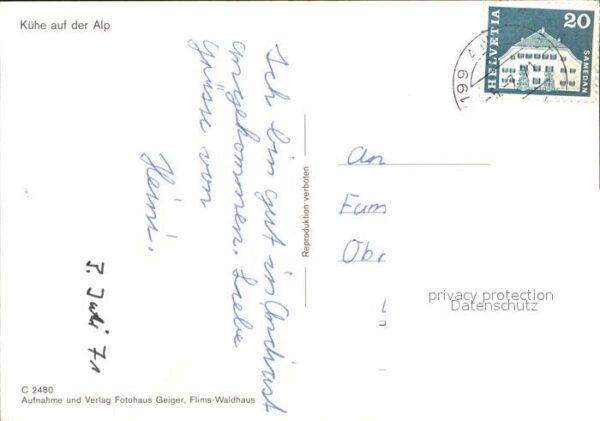 Kühe auf der Alp
HELVETIA
20
SAMEDAN
Ich bin gut in Andiast
angekommen. Liebe
Grüsse von
Heini.
Juli 71
Reproduktion verboten
An
privacy protection
Datenschutz
C 2480
Aufnahme und Verlag Fotohaus Geiger, Flims-Waldhaus